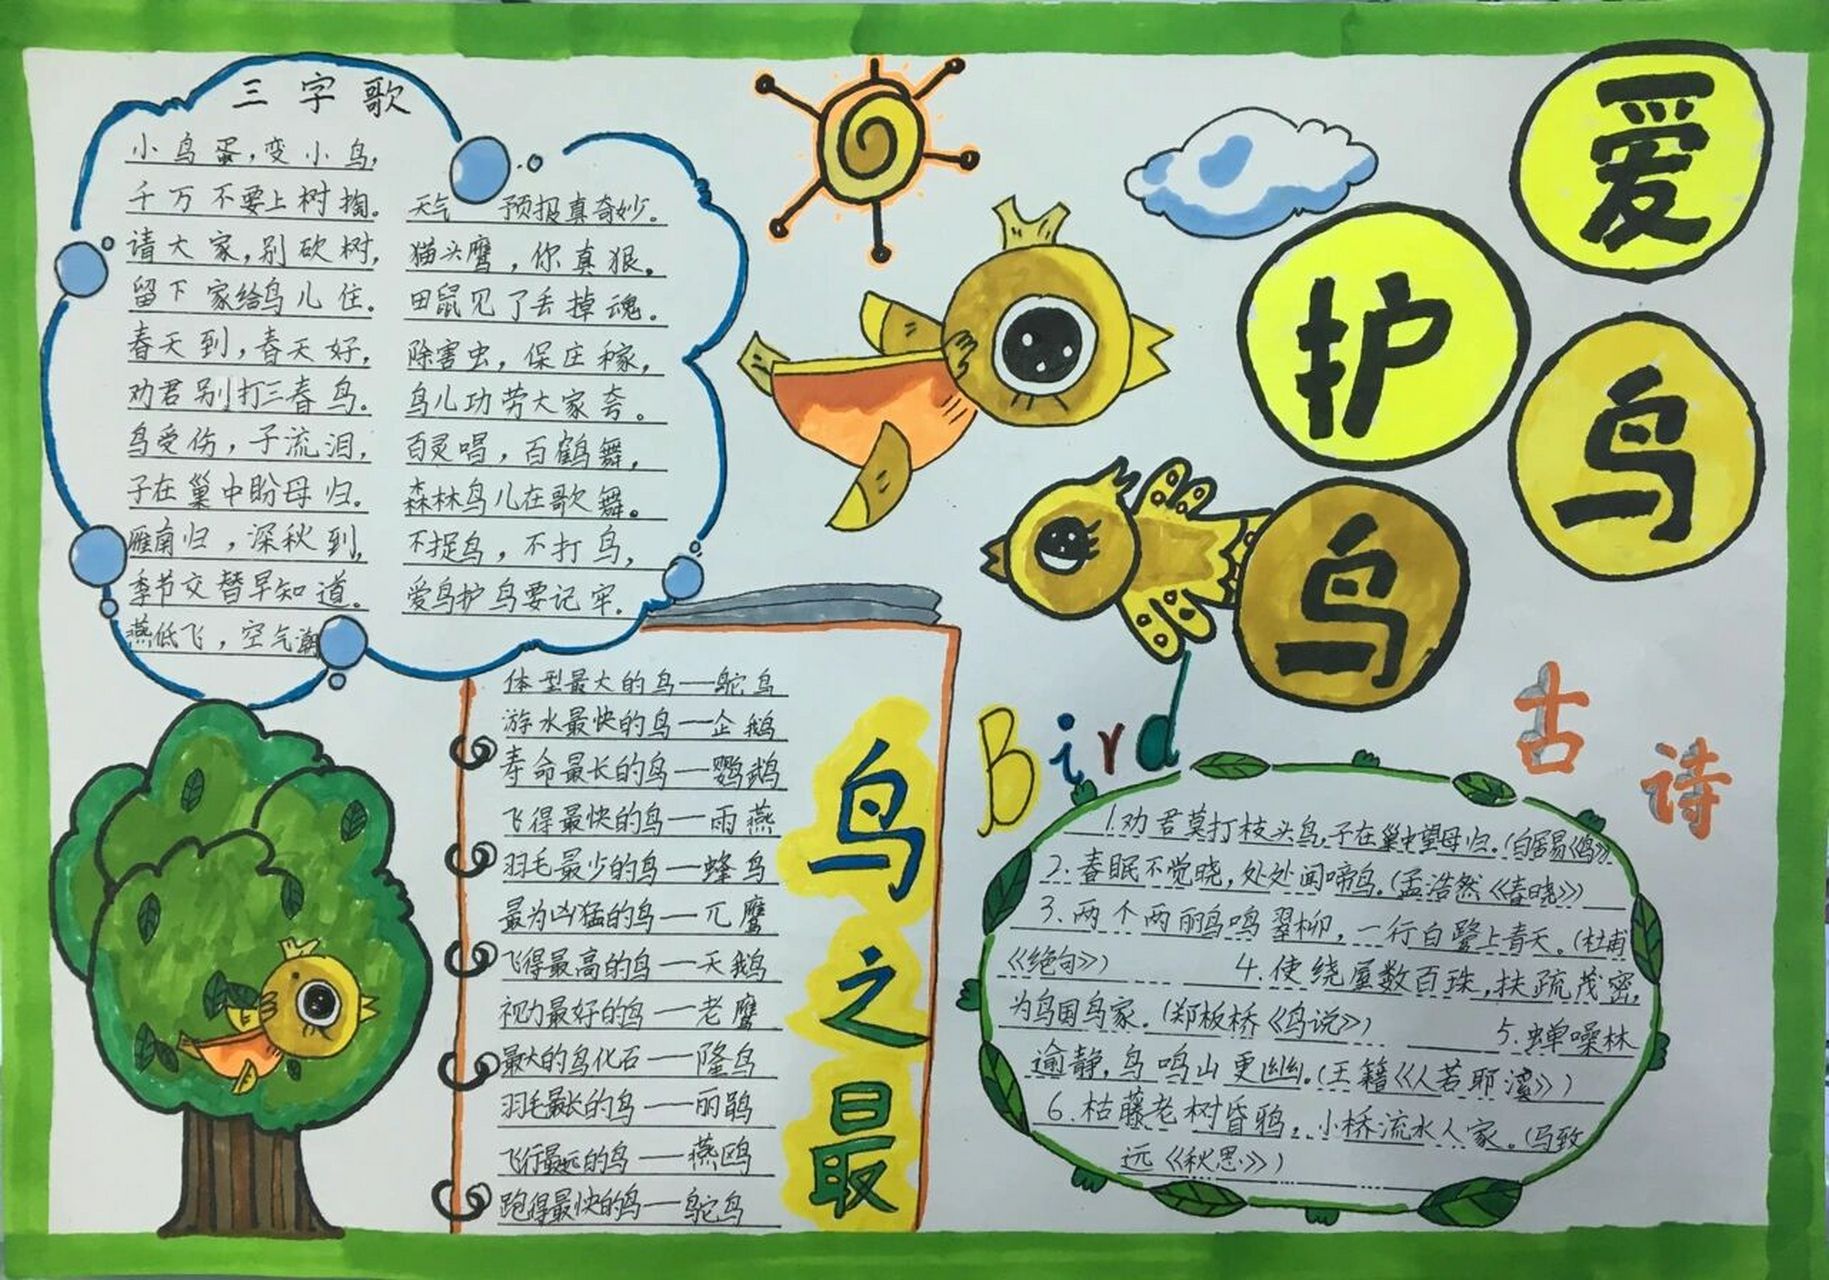 爱
护
鸟
鸟
三字歌
小鸟蛋，变小鸟，
千万不要上树掏。
请大家，别砍树，
留下家给鸟儿住。
春天到，春天好，
劝君别打三春鸟。
鸟受伤，子流泪，
子在巢中盼母归。
雁南归，深秋到，
季节交替早知道。
燕低飞，空气潮
天气 预报真奇妙。
猫头鹰，你真狠。
田鼠见了丢掉魂。
除害虫，保庄稼，
鸟儿功劳大家夸。
百灵唱，百鹤舞，
森林鸟儿在歌舞。
不捉鸟，不打鸟，
爱鸟护鸟要记牢.
体型最大的鸟——鸵鸟
游水最快的鸟——企鹅
寿命最长的鸟——鹦鹉
飞得最快的鸟——雨燕
羽毛最少的鸟——蜂鸟
最为凶猛的鸟——兀鹰
飞得最高的鸟——天鹅
视力最好的鸟——老鹰
最大的鸟化石——隆鸟
羽毛最长的鸟——丽鹃
飞行最远的鸟——燕鸥
跑得最快的鸟——鸵鸟
鸟之最
Bird
古诗
1.劝君莫打枝头鸟,子在巢中望母归.(白居易《鸟》)
2.春眠不觉晓,处处闻啼鸟.(孟浩然《春晓》)
3.两个两丽鸟鸣翠柳，一行白鹭上青天。(杜甫
《绝句》) 4.使绕屋数百珠,扶疏茂密,
为鸟国鸟家.(郑板桥《鸟说》) 5.蝉噪林
逾静,鸟鸣山更幽.(王籍《入若耶溪》)
6.枯藤老树昏鸦，小桥流水人家。(马致
远《秋思》)